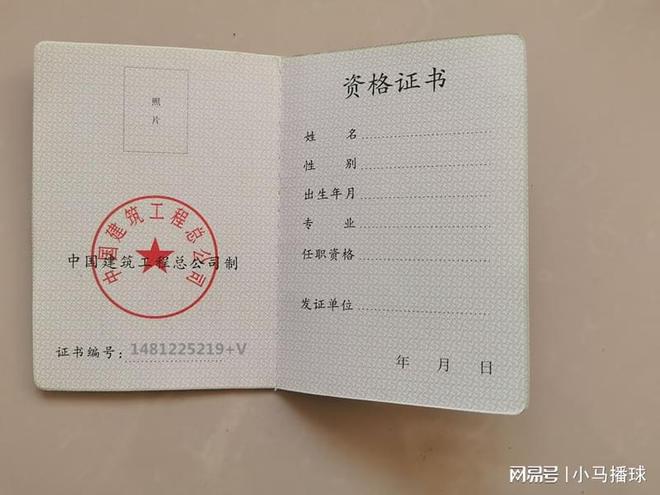 照
片
中国建筑工程总公司
中国建筑工程总公司制
证书编号：1481225219+V
资格证书
姓 名
性 别
出生年月
专 业
任职资格
发证单位
年 月 日
网易号 | 小马播球